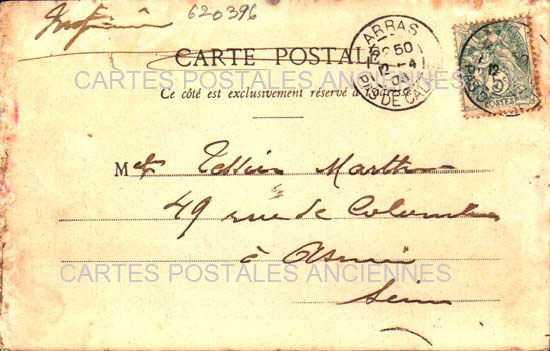 620396
ARRAS
50
12 -4
04
PAS DE CALAIS
POSTES
CARTE POSTALE
CARTES POSTALES ANCIENNES
Ce côté est exclusivement réservé à l'adresse
Melle Tessier Marthe
49 rue de Colombes
à Asnières
Seine
CARTES POSTALES ANCIENNES